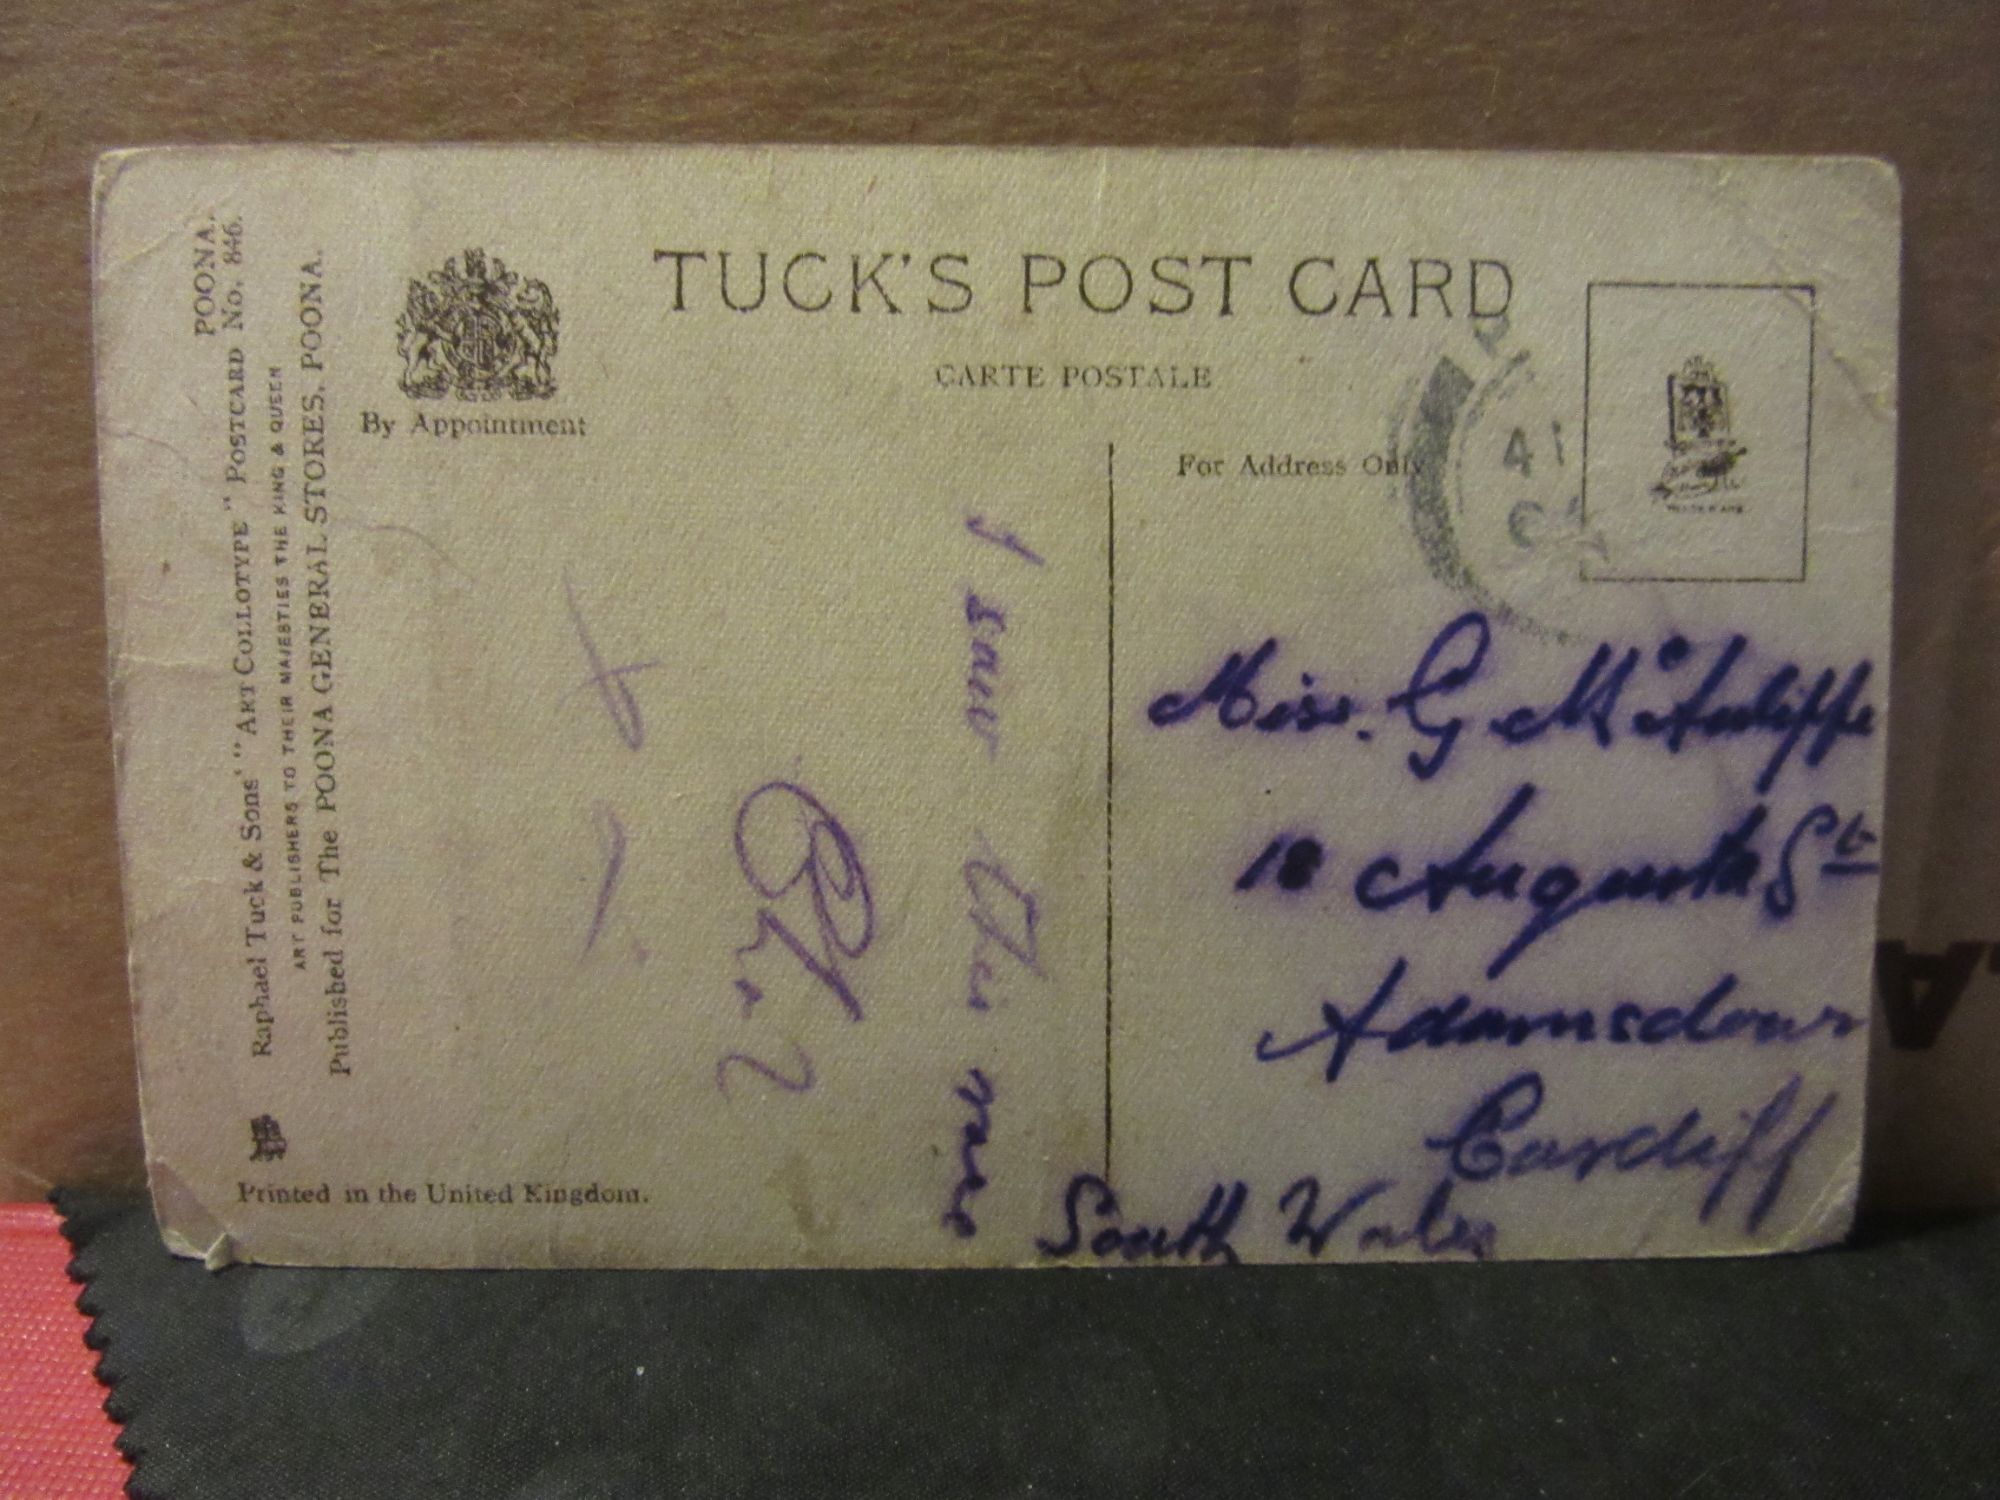 POONA.
Raphael Tuck & Sons' "ART COLLOTYPE" POSTCARD No. 846.
ART PUBLISHERS TO THEIR MAJESTIES THE KING & QUEEN
Published for The POONA GENERAL STORES, POONA.
By Appointment
Printed in the United Kingdom.
TUCK'S POST CARD
CARTE POSTALE
For Address Only
41
TRADE MARK
I saw this
Miss. G McAuliffe
Augusta St
Adamsdown
Cardiff
South Wales